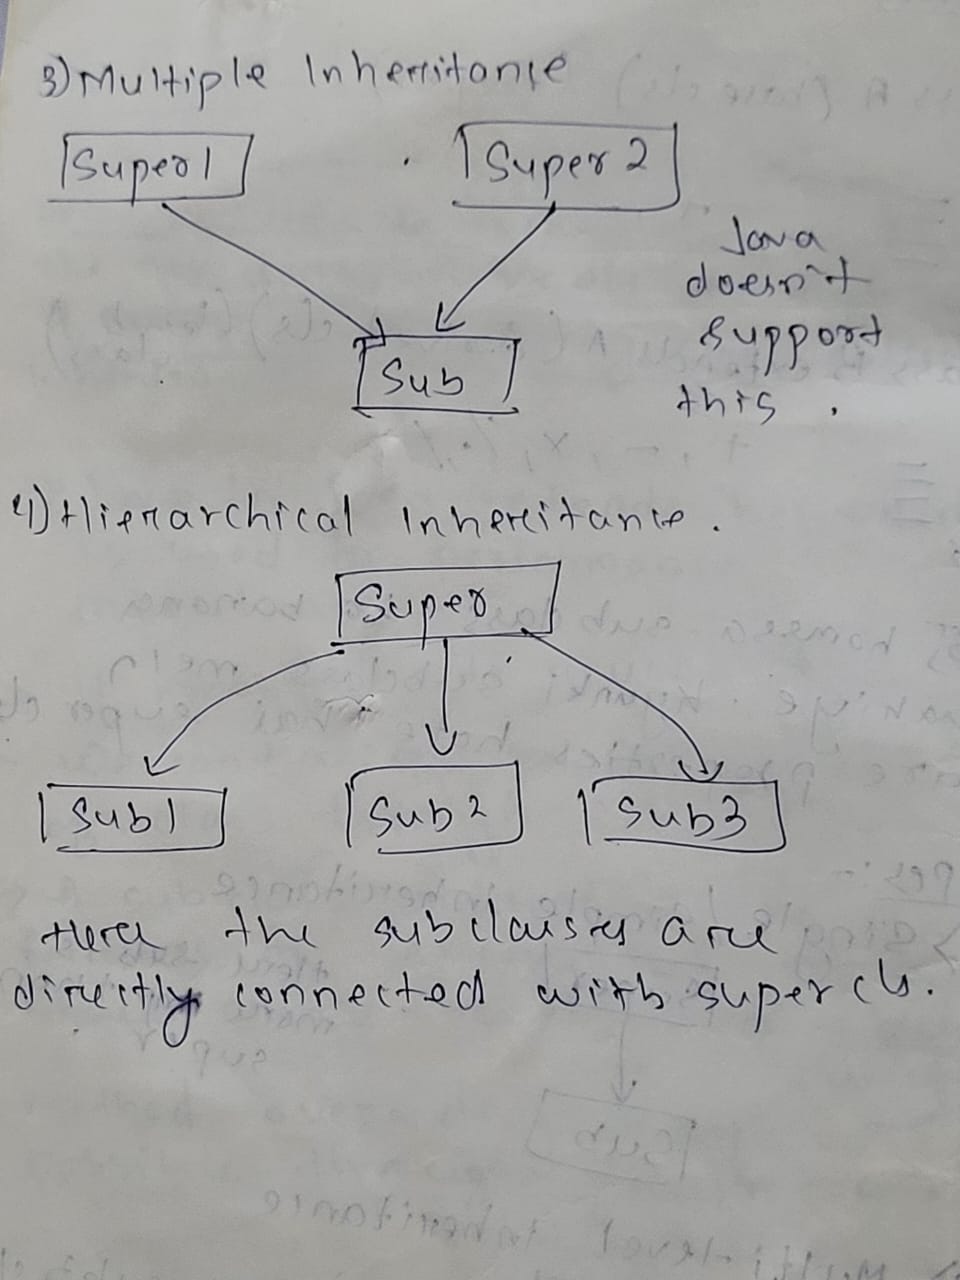 3) Multiple Inheritance
Super 1
Super 2
Java
doesn't
support
this.
Sub
4) Hierarchical Inheritance.
Super
Sub 1
Sub 2
Sub 3
Here the subclasses are
directly connected with super cls.